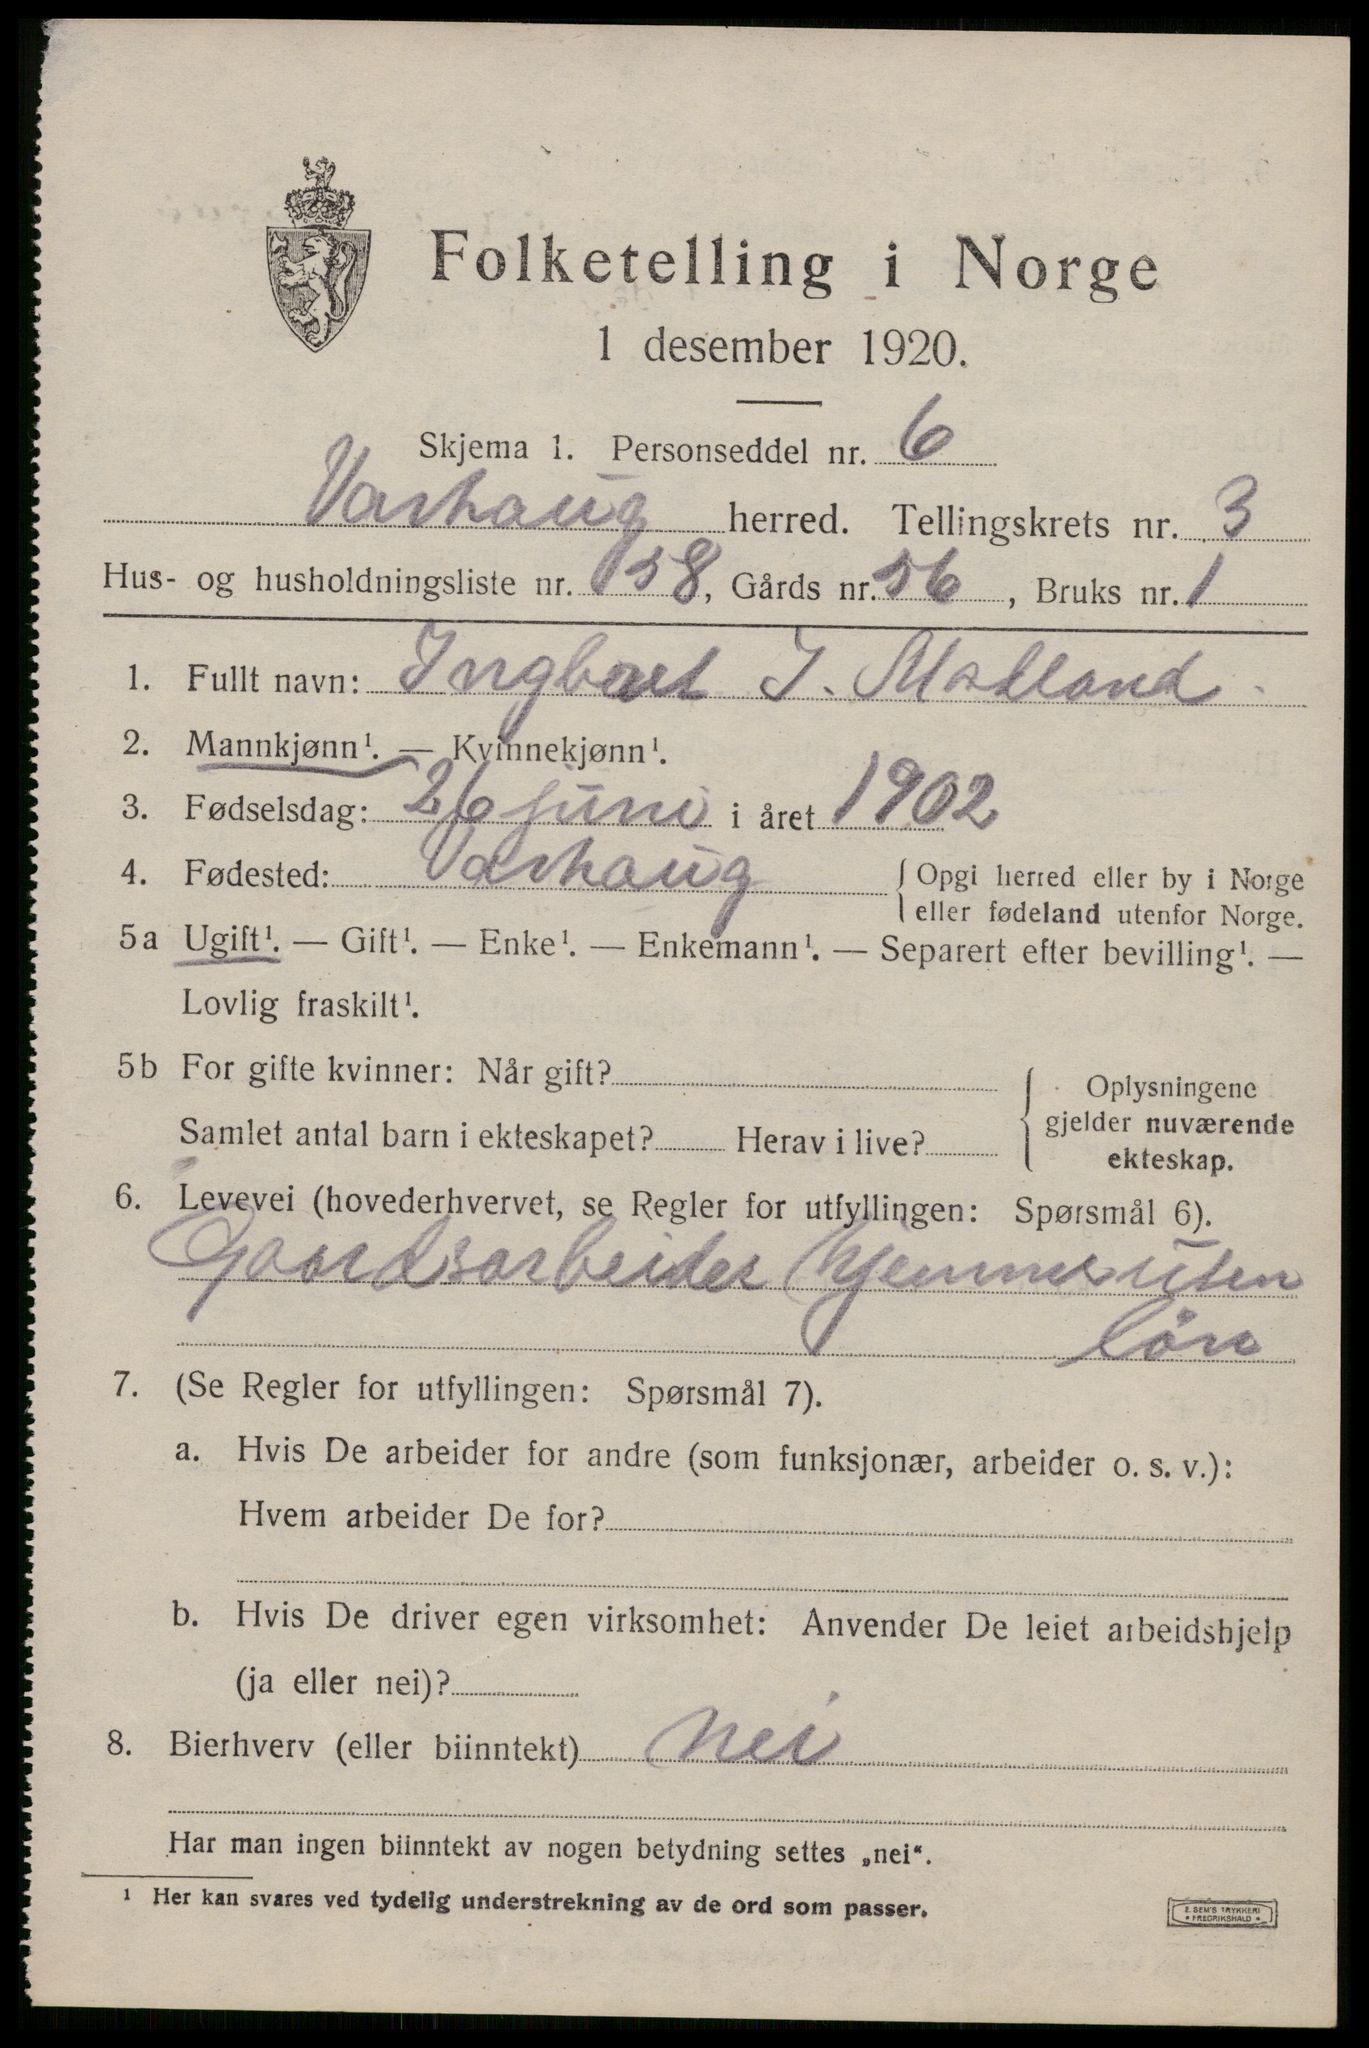 Folketelling i Norge
1 desember 1920.
Skjema 1. Personseddel nr. 6
Varhaug herred. Tellingskrets nr. 3
Hus- og husholdningsliste nr. 158, Gårds nr. 56, Bruks nr. 1
1. Fullt navn: Ingbart I. Motland
2. Mannkjønn¹. — Kvinnekjønn¹.
3. Fødselsdag: 26 juni i året 1902
4. Fødested: Varhaug { Opgi herred eller by i Norge
eller fødeland utenfor Norge.
5a Ugift¹. — Gift¹. — Enke¹. — Enkemann¹. — Separert efter bevilling¹. —
Lovlig fraskilt¹.
5b For gifte kvinner: Når gift?
Samlet antal barn i ekteskapet? Herav i live?
Oplysningene
gjelder nuværende
ekteskap.
6. Levevei (hovederhvervet, se Regler for utfyllingen: Spørsmål 6).
Gaardsarbeider hjemme uten
løn
7. (Se Regler for utfyllingen: Spørsmål 7).
a. Hvis De arbeider for andre (som funksjonær, arbeider o. s. v.):
Hvem arbeider De for?
b. Hvis De driver egen virksomhet: Anvender De leiet arbeidshjelp
(ja eller nei)?
8. Bierhverv (eller biinntekt) nei
Har man ingen biinntekt av nogen betydning settes „nei“.
¹ Her kan svares ved tydelig understrekning av de ord som passer.
E. SEM'S TRYKKERI
• FREDRIKSHALD •